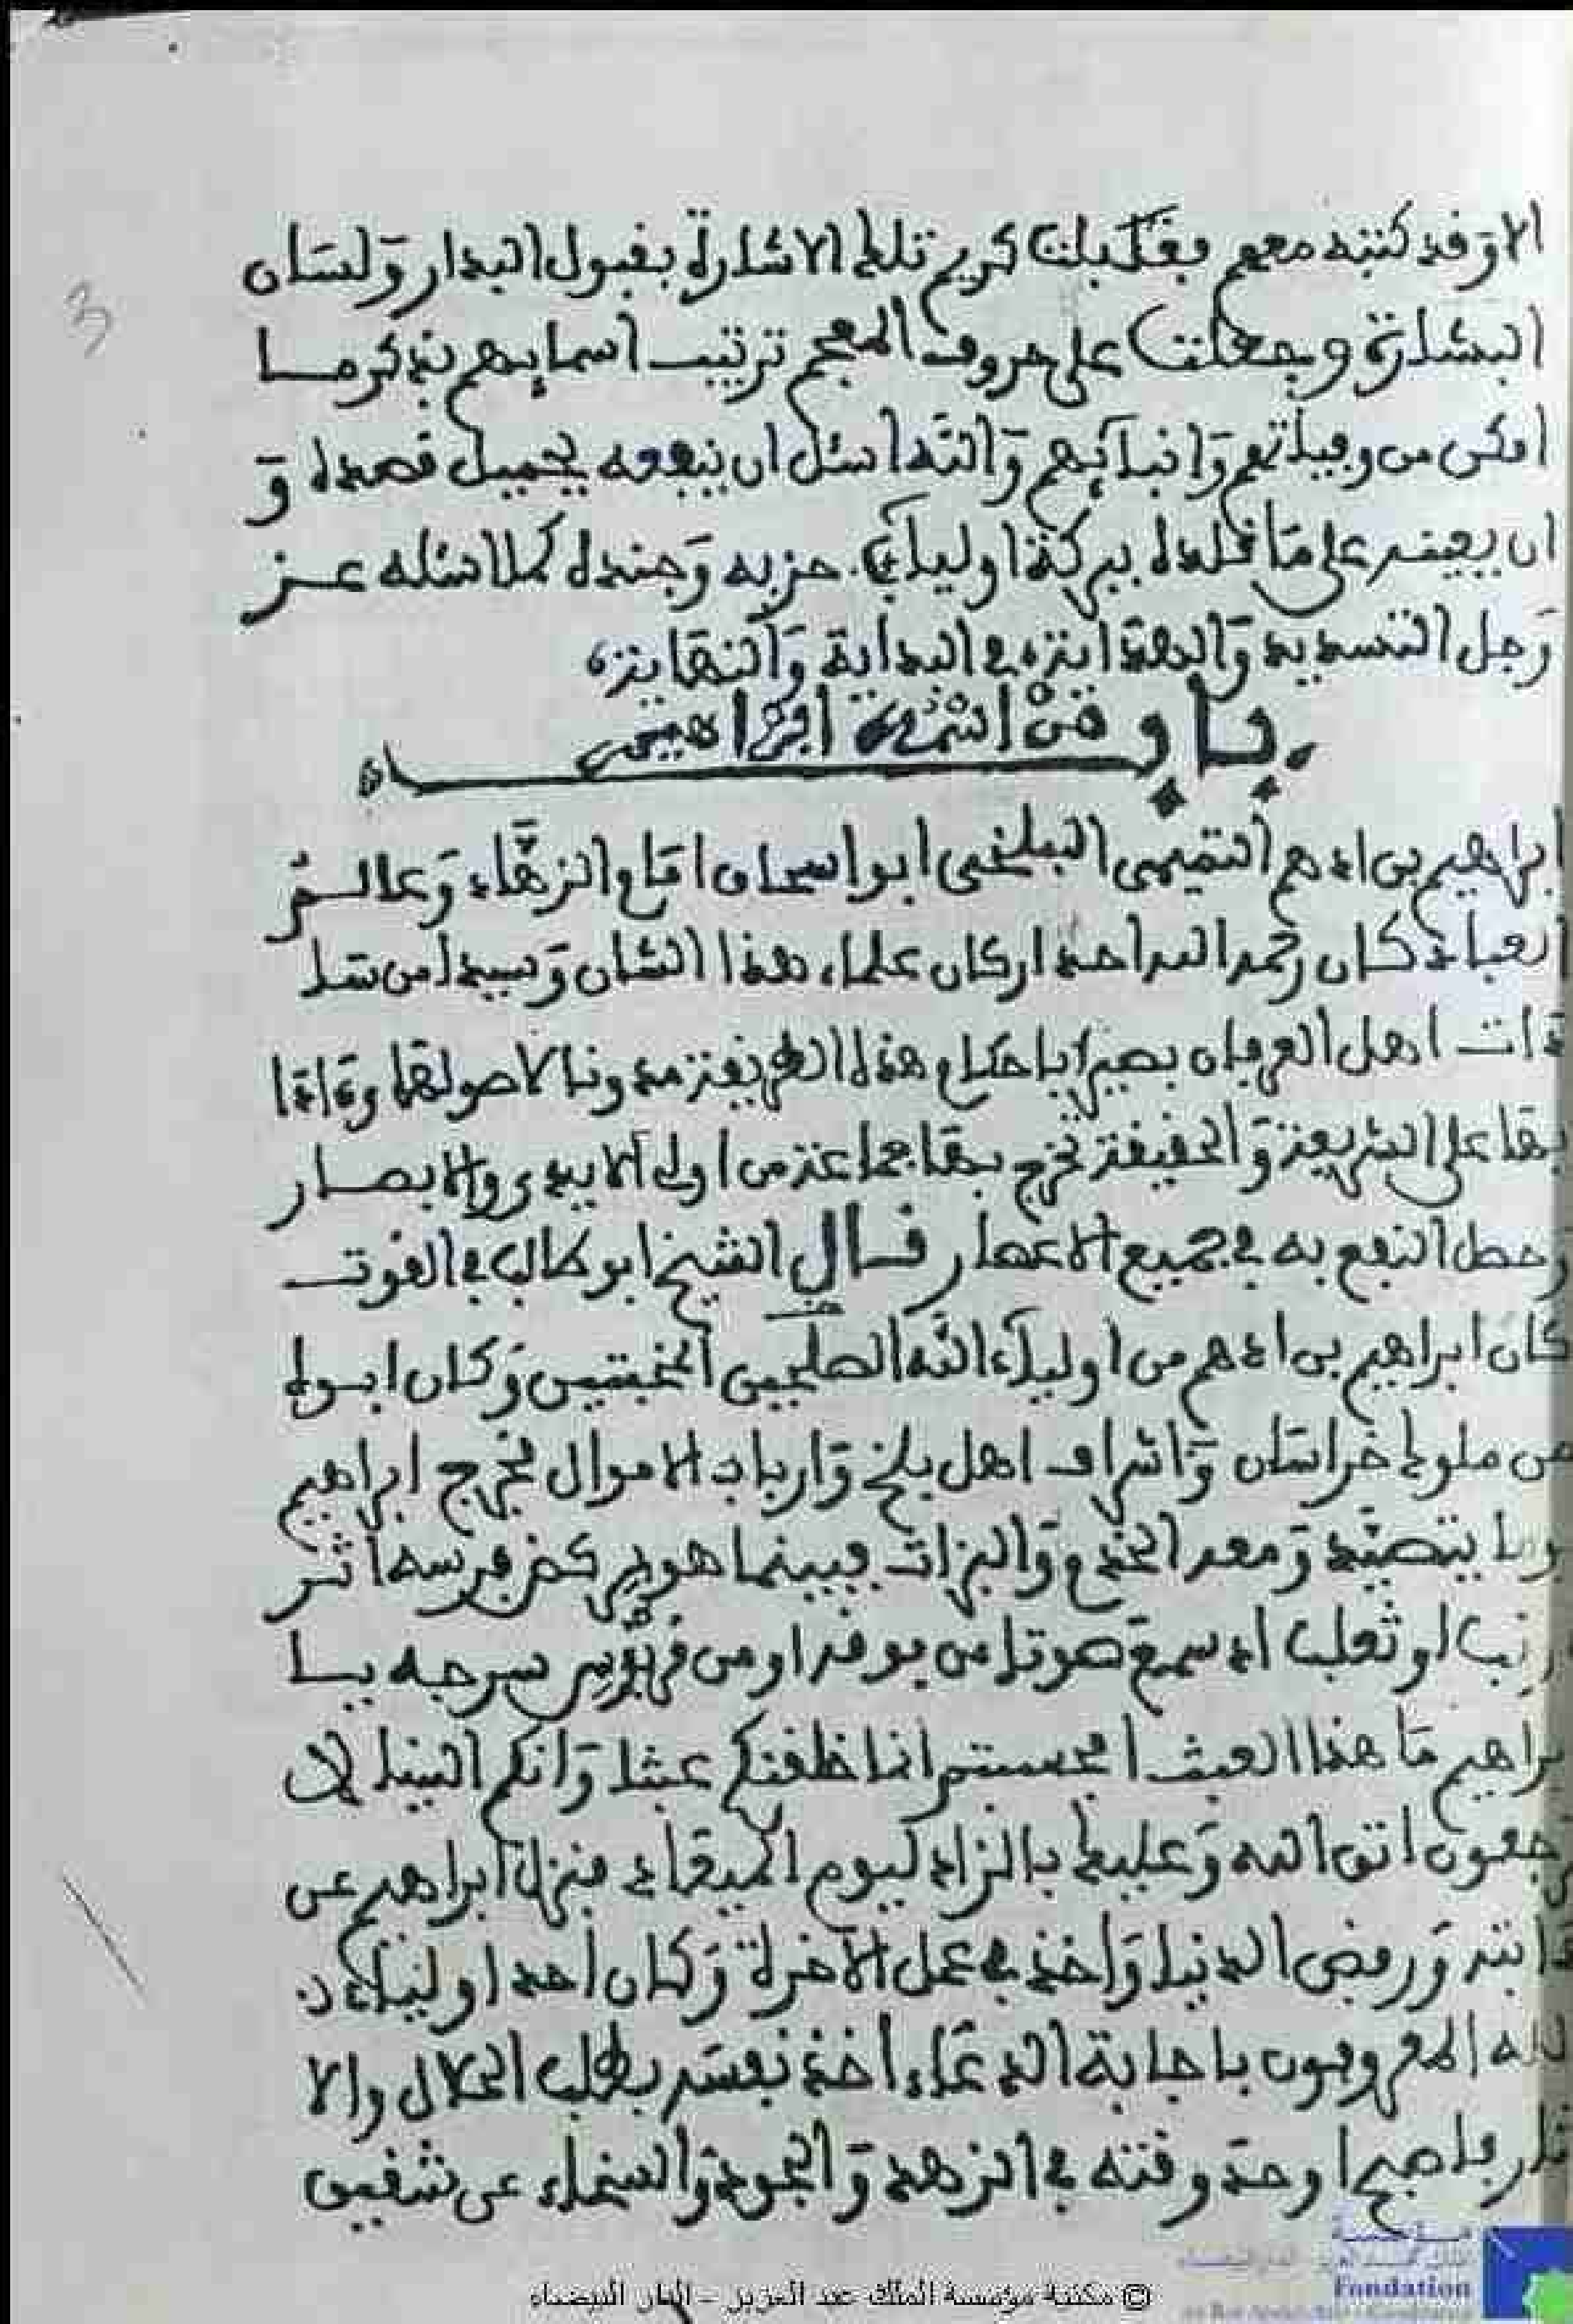 الا وقد كتبته معهم فقلبك كريم تلك الاشارة بقبول البدار ولسان
البشارة وجعلت على حروف المعجم ترتيب اسمايهم نذكر ما
امكن من وفياتهم وانبآئهم والله اسئل ان ينفعه بجميل قصده و
ان يعينه على ما قلده ببركة اوليآئه حزبه وجنده كما اسئله عز
وجل التسديد والهداية في البداية والنهاية
باب من اسمه ابراهيم
ابراهيم بن ادهم التميمي البلخي ابو اسحاق امام الزهاد وعالم
العباد كان رحمه الله احد اركان علماء هذا الشان وسيدا من سا
دات اهل العرفان بصيرا باحكام هذه الطريقة مدونا لاصولها وءاذا
بها على الشريعة والحقيقة تخرج بها جماعة من اولى الايدى والابصار
وحصل النفع به في جميع الاعصار قال الشيخ ابو طالب في القوت
كان ابراهيم بن ادهم من اوليآء الله الصلحين المخبتين وكان ابوه
من ملوك خراسان واشراف اهل بلخ وارباب الاموال فخرج ابراهيم
يوما يتصيد ومعه الخدم والبزات فبينما هو يركض فرسه اثر
ارنب او ثعلب اذ سمع صوتا من فوقه او من قربوس سرجه يا
براهيم ما هذا العبث افحسبتم انما خلقنكم عبثا وانكم الينا لا
ترجعون اتق الله وعليك بالزاد ليوم الميعاد فنزل ابراهيم عن
دابته ورفض الدنيا واخذ في عمل الآخرة وكان احد اوليآء
لله المعروفون باجابة الدعاء اخذ نفسه بطلب الحلال والا
ثار فاصبح اوحد وقته في الزهد والجود والسخاء عن شقيق
© مكتبة مؤسسة الملك عبد العزيز - الدار البيضاء
مؤسسة
Fondation
3